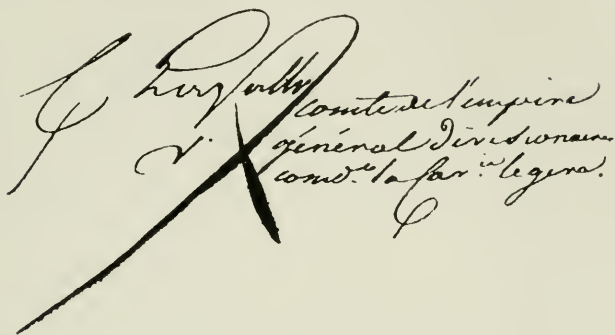 comte de l'empire
général divisionaire
comd.te la Cav.ie legere.